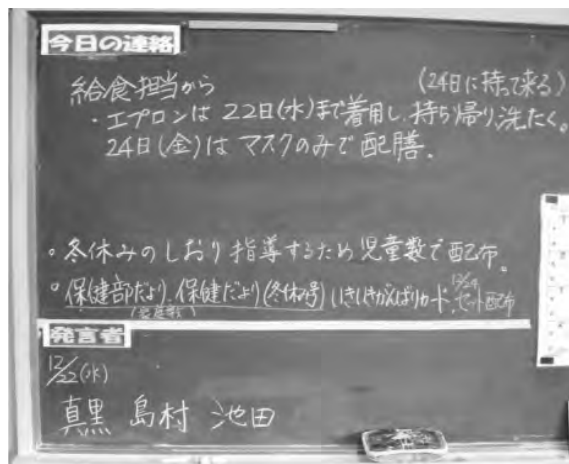 今日の連絡
給食担当から (24日に持って来る)
・エプロンは22日(水)まで着用し、持ち帰り洗たく。
24日(金)はマスクのみで配膳.
。冬休みのしおり指導するため児童数で配布。
。保健部だより、保健だより(冬休み号)いきいきがんばりカード、12/24セット配布
発言者
12/22(水)
真黒 島村 池田